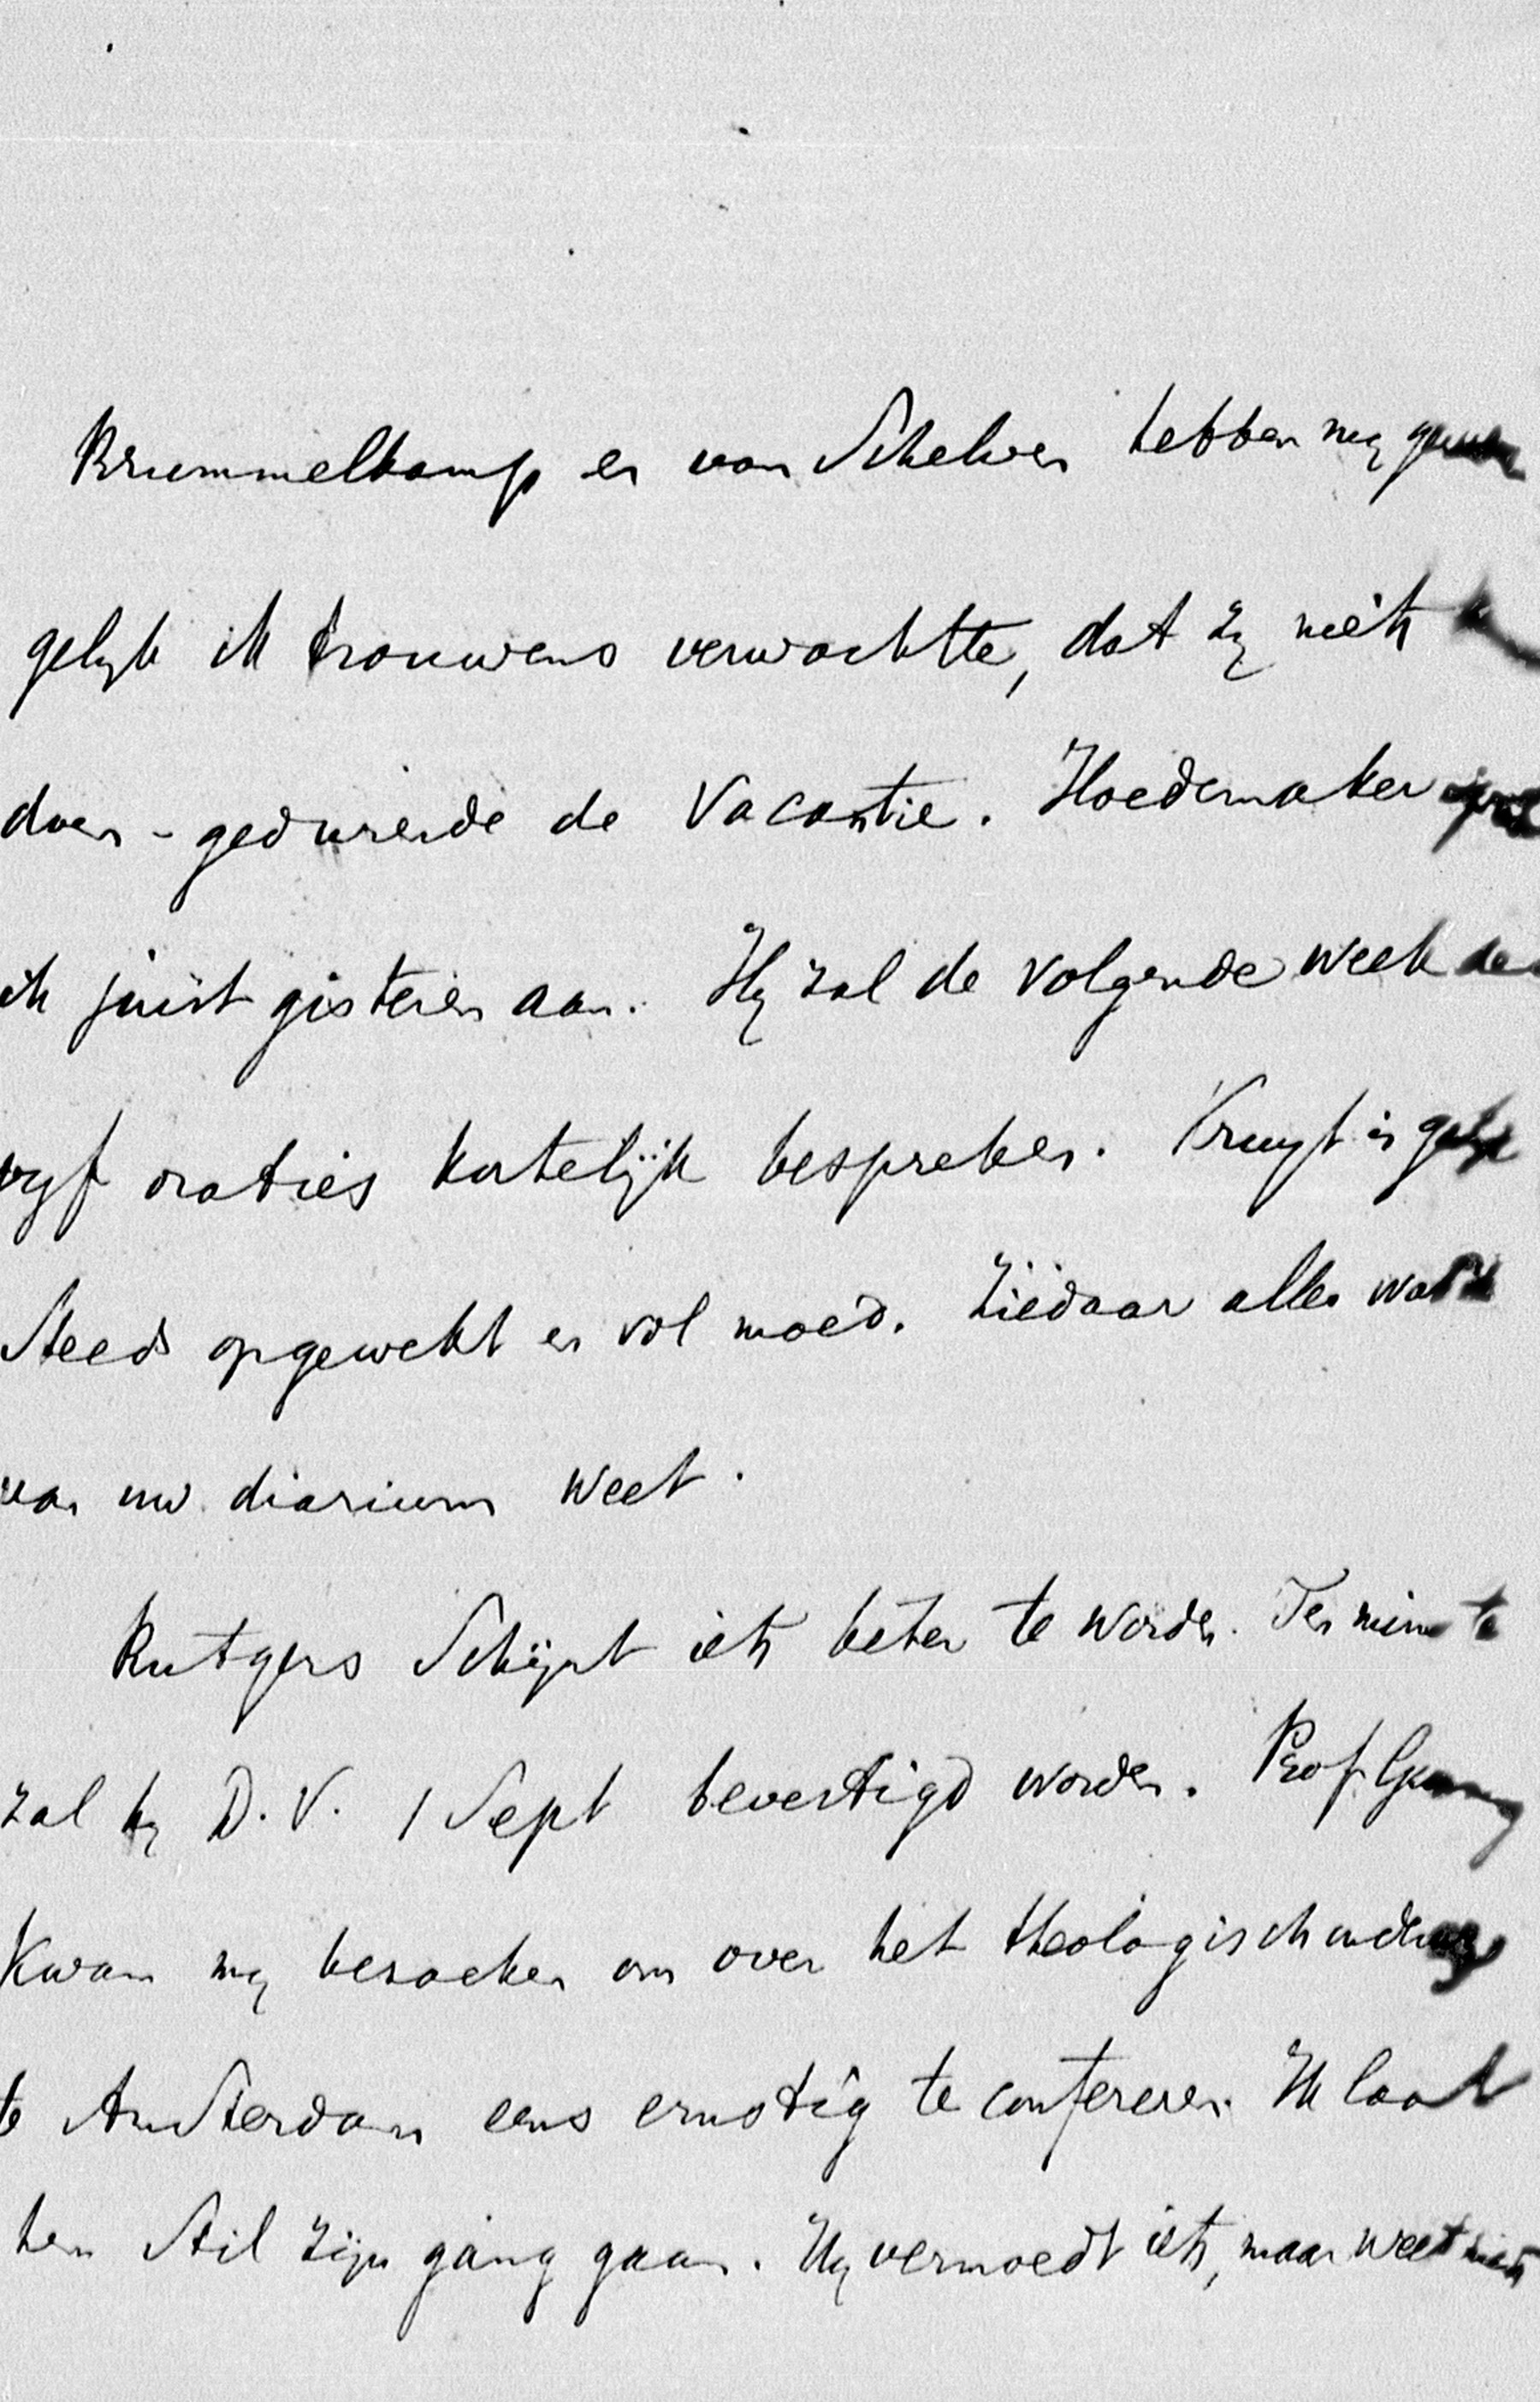 Brummelkamp en van Schelven hebben mij
gelijk ik trouwens verwachtte, dat zij niets
doen - gedurende de Vacantie. Hoedemaker
ik juist gisteren aan. Hij zal de volgende week de
vijf oraties kortelijk bespreken. Kruyf is
Steeds opgewekt en vol moed. Ziedaar alles wat ik
van uw diarium weet.
Rutgers Schijnt iets beter te worden. Ten minste
zal hij D.V. 1 Sept bevestigd worden. Prof. Gunning
Kwam mij bezoeken om over het theologisch onderwijs
te Amsterdam eens ernstig te confereren. Ik laat
hem Stil zijn gang gaan. Hij vermoedt iets, maar weet niets